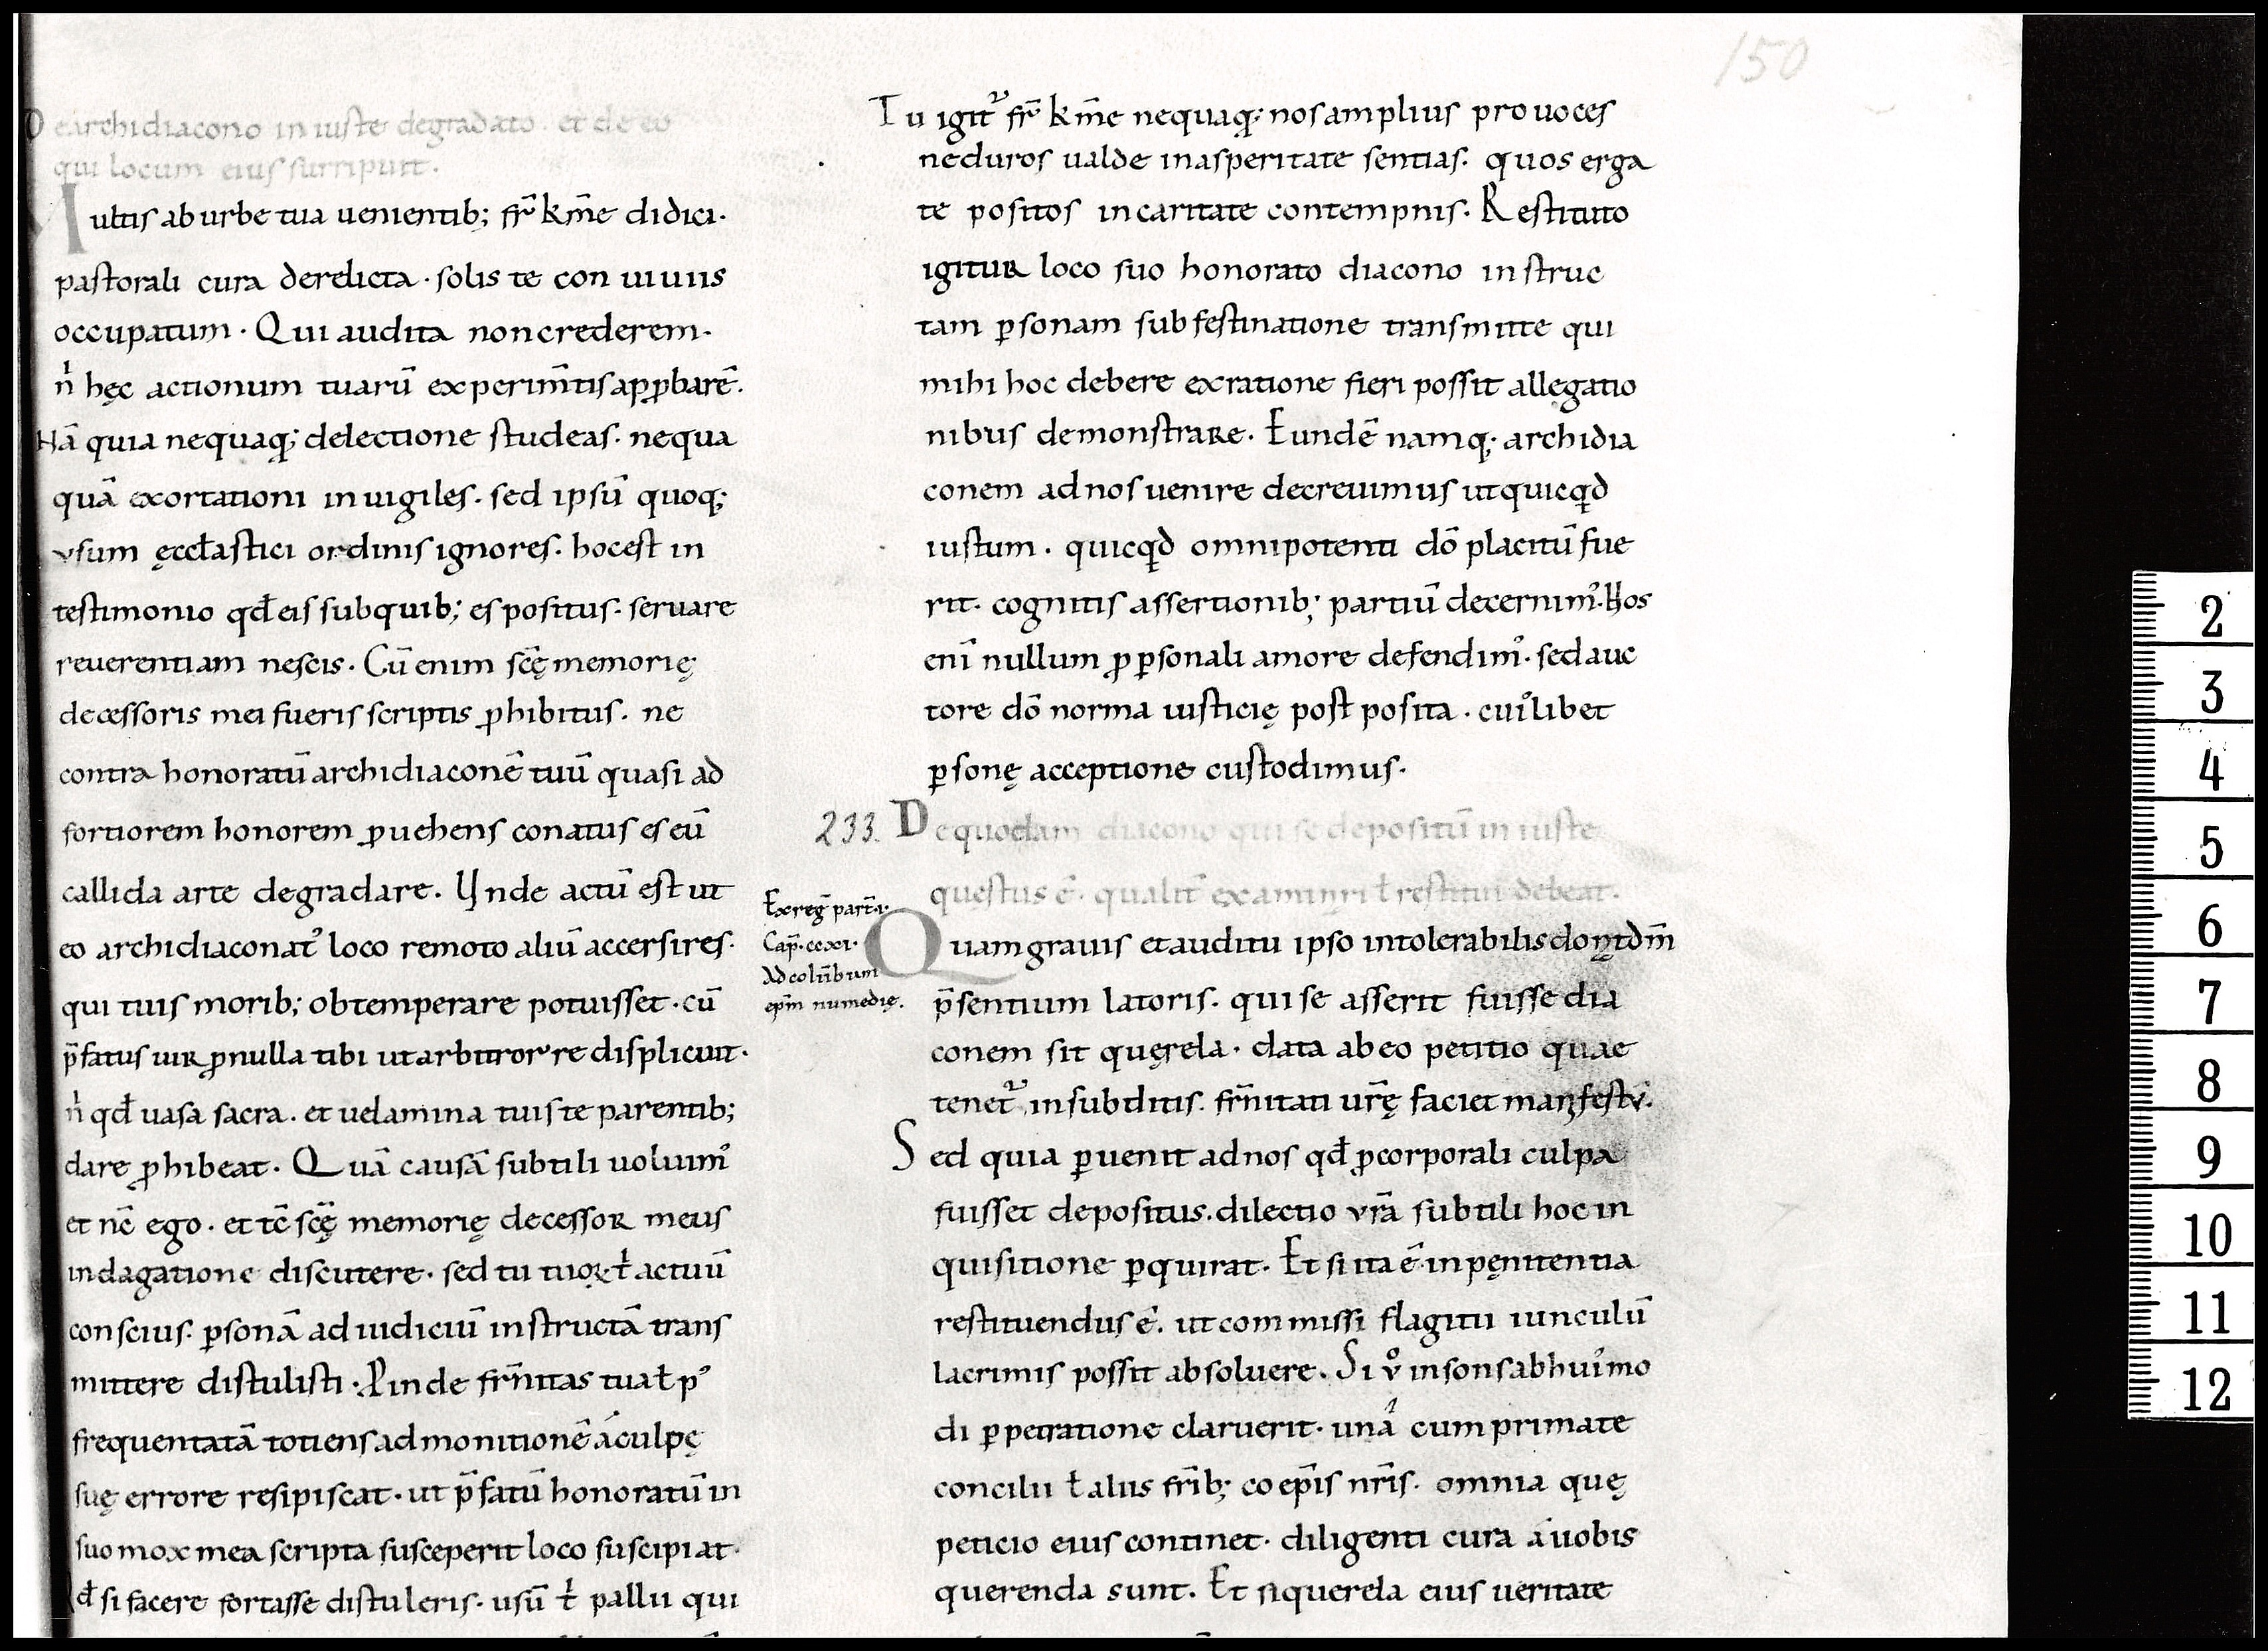 De archidiacono iniuste degradato. et de eo
qui locum eius surripuit.
Multis ab urbe tua uenientib; fr̄ km̄e didici.
pastorali cura derelicta. solis te conuiuiis
occupatum. Qui audita non crederem.
n̍ hęc actionum tuarū experim̄tis app̱barē.
Nā quia nequaq; delectione studeas. nequa
quā exortationi inuigiles. sed ipsū quoq;
vsum ęccl̄astici ordinis ignores. hoc est in
testimonio qđ eis sub quib; es positus. seruare
reuerentiam nescis. Cū enim sc̄ę memorię
decessoris mei fueris scriptis ꝓhibitus. ne
contra honoratū archidiaconē tuū quasi ad
fortiorem honorem ꝓuehens conatus es eū
callida arte degradare. Unde actū est ut
eo archidiaconat᾽ loco remoto aliū accersires.
qui tuis morib; obtemperare potuisset. cū
p̄fatus uir ꝓ nulla tibi ut arbitror re displicuit.
n̍ qđ uasa sacra. et uelamina tuis te parentib;
dare ꝓhibeat. Quā causā subtili uoluim᾽
et nc̄ ego. et tc̄ sc̄ę memorię decessor meus
indagatione discutere. sed tu tuoꝝ ł actuū
conscius. ꝑsonā ad iudiciū instructā trans
mittere distulisti. Proinde fr̄nitas tua ł p᾽
frequentatā totiens admonitionē á culpę
suę errore resipiscat. ut p̄fatū honoratū in
suo mox mea scripta susceperit loco suscipiat.
qđ si facere fortasse distuleris. usū ł pallii qui
150
Tu igit᷑ fr̄ km̄e nequaq; nos amplius prouoces
ne duros ualde in asperitate sentias. quos erga
te positos in caritate contempnis. Restituto
igitur loco suo honorato diacono instruc
tam ꝑsonam sub festinatione transmitte qui
mihi hoc debere ex ratione fieri possit allegatio
nibus demonstrare. Eundē namq; archidia
conem ad nos uenire decreuimus ut quicqꝗd
iustum. quicqꝗd omnipotenti dō placitū fue
rit. cognitis assertionib; partiū decernim᾽. Nos
enī nullum ꝓ ꝑsonali amore defendim᾽. sed auc
tore dō norma iusticię postposita. cui᾽libet
ꝑsonę acceptione custodimus.
233. De quodam diacono qui se depositū iniuste
questus ē. qualit᷑ examinari ł restitui debeat.
Ex reḡ part̄.i.
Cap̄. ccxi.
Ad colūbum
ep̄m numedię.
Quam grauis et auditu ipso intolerabilis
p̄sentium latoris. qui se asserit fuisse dia
conem sit quęrela. data ab eo petitio quae
tenet᷑ in subditis. fr̄nitati ur̄ę faciet manifestū.
Sed quia ꝑuenit ad nos qđ ꝓ corporali culpa
fuisset depositus. dilectio vr̄a subtili hoc in
quisitione ꝑquirat. Et si ita ē. in pęnitentia
restituendus ē. ut commissi flagitii uinculū
lacrimis possit absoluere. Si v̊ insons ab hui᾽mo
di ꝑpetratione claruerit. unā cum primate
concilii ł aliis fr̄ib; coep̄is nr̄is. omnia quę
peticio eius continet. diligenti cura á uobis
querenda sunt. Et si querela eius ueritate